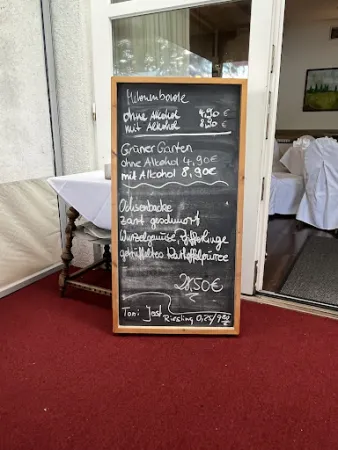 Melonenbowle
ohne Alkohol 4,90 €
mit Alkohol 8,90 €
Grüner Garten
ohne Alkohol 4,90€
mit Alkohol 8,90€
Ochsenbacke
zart geschmort
Wurzelgemüse, Pfifferlinge
getrüffeltes Kartoffelpüree
28,50€
Toni Jost
Riesling 0,25/9,80